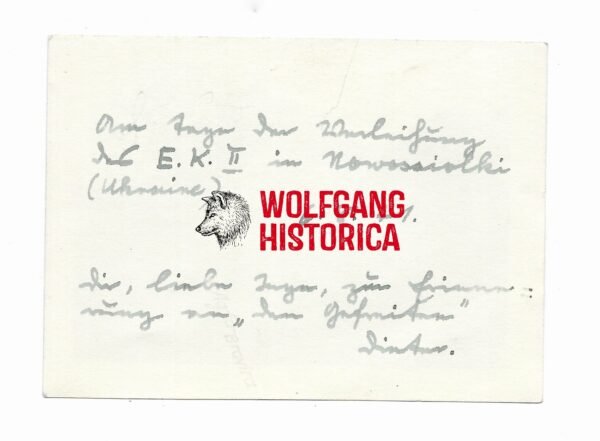 Am Tage der Verleihung
des E.K. II in Nowossiolki
(Ukraine) 41.
WOLFGANG
HISTORICA
Dir, liebe Inge, zur Erinne-
rung an „den Gefreiten"
Dieter.